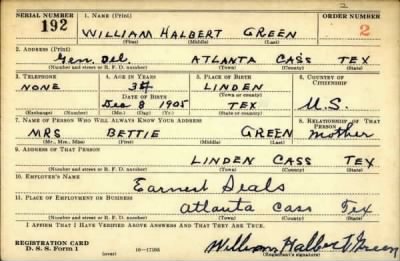 2
SERIAL NUMBER 1. NAME (Print) ORDER NUMBER
192 WILLIAM HALBERT GREEN 2
(First) (Middle) (Last)
2. ADDRESS (Print)
Gen. Del. ATLANTA CASS TEX
(Number and street or R. F. D. number) (Town) (County) (State)
3. TELEPHONE 4. AGE IN YEARS 5. PLACE OF BIRTH 6. COUNTRY OF CITIZENSHIP
NONE 34 LINDEN
DATE OF BIRTH (Town or county)
Dec 8 1905 TEX U.S.
(Exchange) (Number) (Mo.) (Day) (Yr.) (State or country)
7. NAME OF PERSON WHO WILL ALWAYS KNOW YOUR ADDRESS 8. RELATIONSHIP OF THAT PERSON
MRS BETTIE GREEN Mother
(Mr., Mrs., Miss) (First) (Middle) (Last)
9. ADDRESS OF THAT PERSON
LINDEN CASS TEX
(Number and street or R. F. D. number) (Town) (County) (State)
10. EMPLOYER'S NAME
Earnest Seals
11. PLACE OF EMPLOYMENT OR BUSINESS
Atlanta Cass Tex
(Number and street or R. F. D. number) (Town) (County) (State)
I AFFIRM THAT I HAVE VERIFIED ABOVE ANSWERS AND THAT THEY ARE TRUE.
REGISTRATION CARD
D. S. S. Form 1 William Halbert Green
(Registrant's signature)